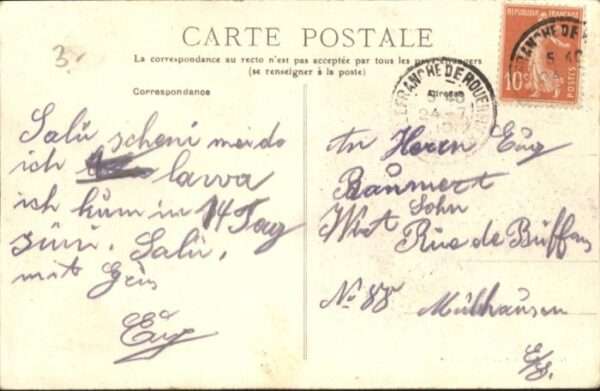 3.
CARTE POSTALE
La correspondance au recto n'est pas acceptée par tous les pays étrangers
(se renseigner à la poste)
Correspondance
Adresse
RÉPUBLIQUE FRANÇAISE
10c
POSTES
VILLEFRANCHE DE ROUERGUE
5 40
24-7
Salü scheni
ich lawa
ich küm in 14 Tag
Salü,
mit Grüs
Eug
An Herrn Eug
Baumert
Sohn
Wirt Rue de Buffon
No 88 Mülhausen
E/s.